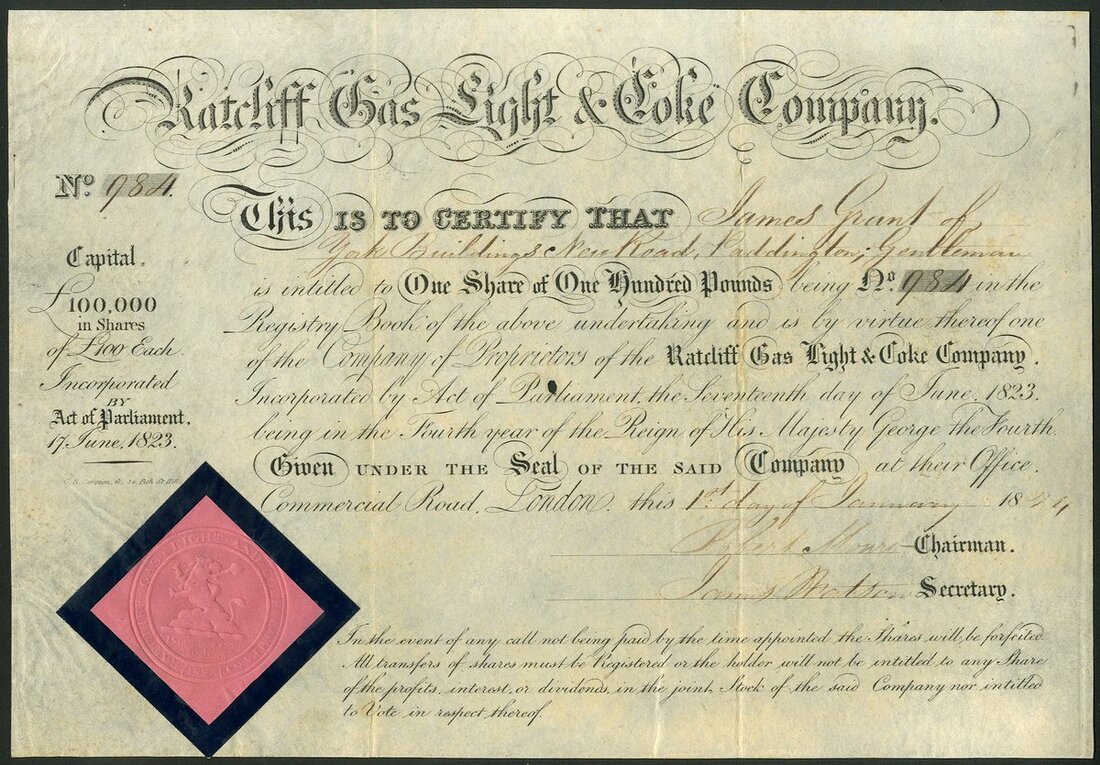 Ratcliff Gas Light & Coke Company.
No. 984.
This IS TO CERTIFY THAT James Grant of
York Buildings New Road, Paddington, Gentleman
Capital,
£100,000
in Shares
of £100 Each.
Incorporated
BY
Act of Parliament,
17 June, 1823.
is intitled to One Share of One Hundred Pounds being No. 984 in the
Registry Book of the above undertaking and is by virtue thereof one
of the Company of Proprietors of the Ratcliff Gas Light & Coke Company.
Incorporated by Act of Parliament, the Seventeenth day of June, 1823.
being in the Fourth year of the Reign of His Majesty George the Fourth.
Given UNDER THE Seal OF THE SAID Company at their Office,
Commercial Road, London, this 1st day of January 1824
Chairman.
James Watson Secretary.
LIGHT AND
In the event of any call not being paid by the time appointed the Shares will be forfeited
All transfers of shares must be Registered or the holder will not be intitled to any Share
of the profits, interest, or dividends, in the joint Stock of the said Company nor intitled
to Vote in respect thereof.